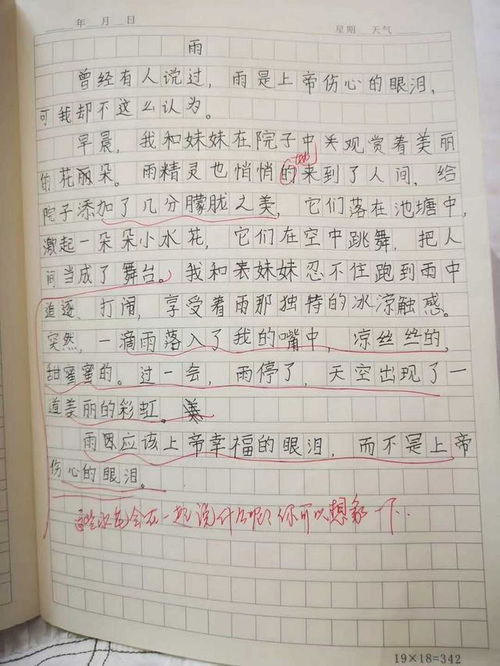 年 月 日 星期 天气
雨
曾经有人说过，雨是上帝伤心的眼泪，
可我却不这么认为。
早晨，我和妹妹在院子中观赏着美丽
的花朵。雨精灵也悄悄的来到了人间，给
地
院子添加了几分朦胧之美，它们落在池塘中，
激起一朵朵小水花，它们在空中跳舞，把人
间当成了舞台。我和表妹妹忍不住跑到雨中
追逐，打闹，享受着雨那独特的冰凉触感。
突然，一滴雨落入了我的嘴中，凉丝丝的，
甜蜜蜜的。过一会，雨停了，天空出现了一
道美丽的彩虹。
雨因应该上帝幸福的眼泪，而不是上帝
伤心的眼泪。
会在一起说什么呢？你可以想象一下.
19×18=342